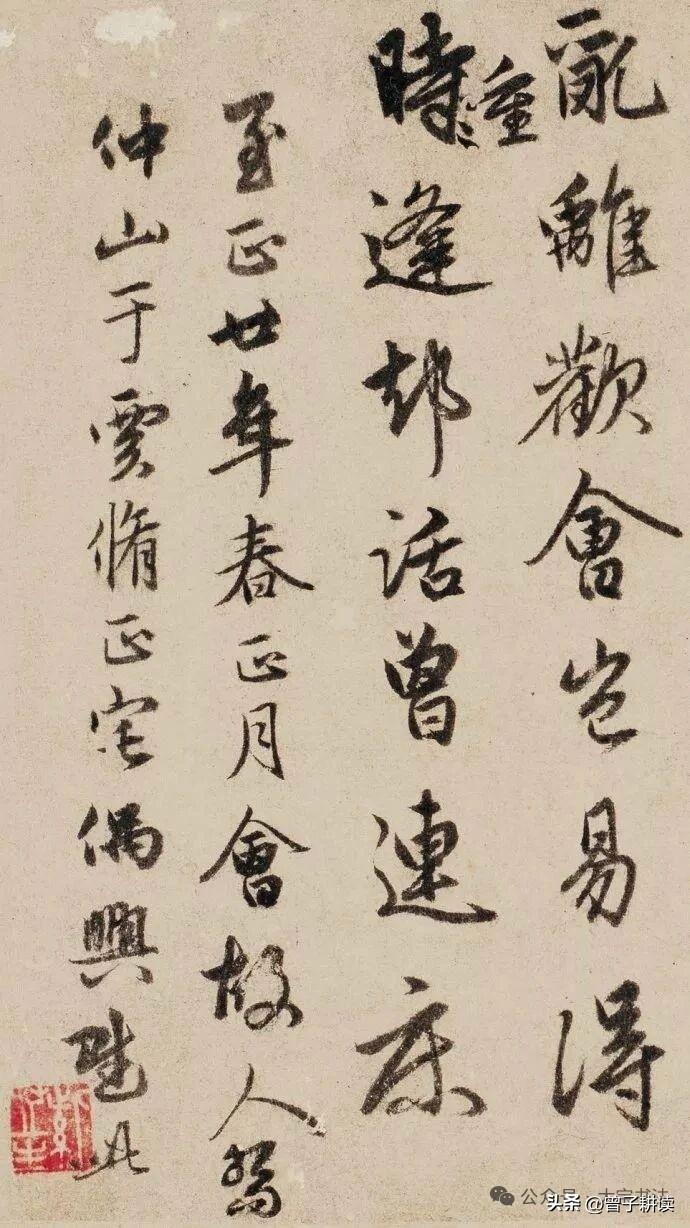 亂離歡會豈易得
時重逢却話曾連床
至正廿年春正月會故人
仲山于賈脩正宅偶興此
公众号
头条 @曾子耕读